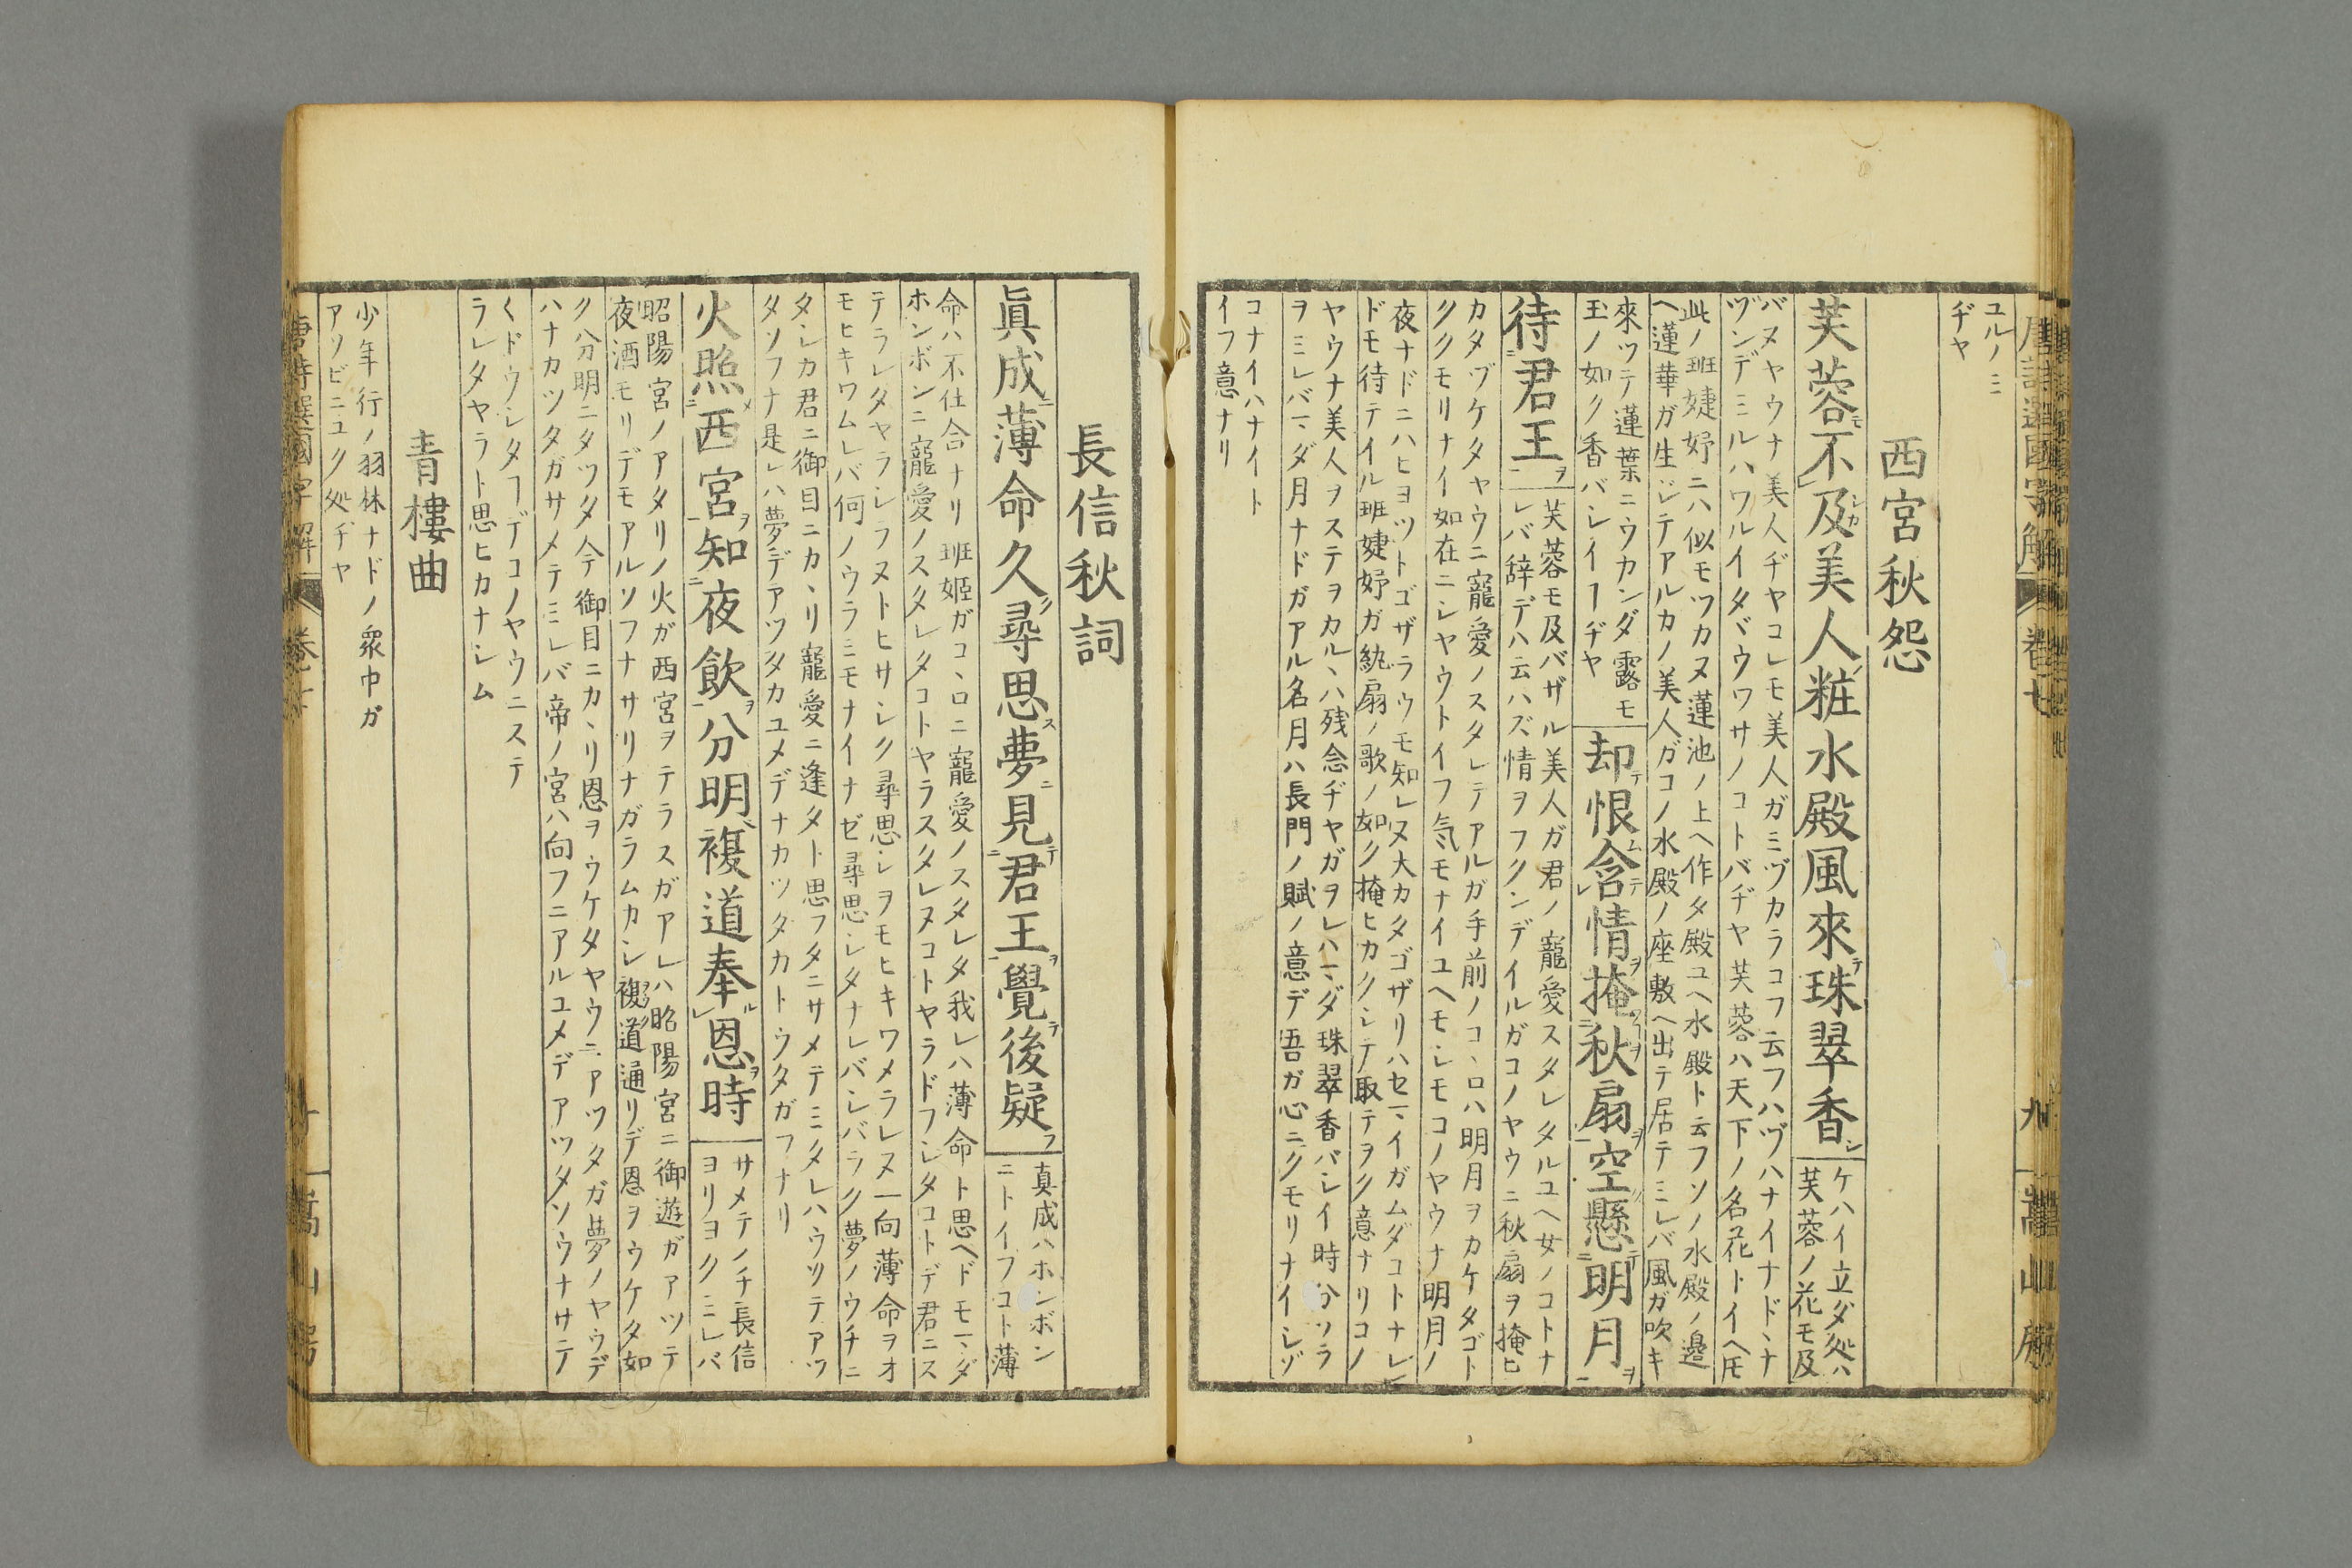 唐詩選國字解 卷七 九 嵩山房
ユルノミ
ヂヤ
西宮秋怨
芙蓉不及美人粧水殿風來珠翠香
ケハイ立ダ処ハ
芙蓉ノ花モ及
バヌヤウナ美人ヂヤコレモ美人ガミヅカラコフ云フハヅハナイナドヽナ
ヅンデミルハワルイタヾウワサノコトバヂヤ芙蓉ハ天下ノ名花トイヘ𪜈
此ノ班婕妤ニハ似モツカヌ蓮池ノ上ヘ作タ殿ユヘ水殿ト云フソノ水殿ノ邉
ヘ蓮華ガ生ジテアルカノ美人ガコノ水殿ノ座敷ヘ出テ居テミレバ風ガ吹キ
來ツテ蓮葉ニウカンダ露モ
玉ノ如ク香バシイヿヂヤ
却恨含情掩秋扇空懸明月
待君王
芙蓉モ及バザル美人ガ君ノ寵愛スタレタルユヘ女ノコトナ
レバ辞デハ云ハズ情ヲフクンデイルガコノヤウニ秋扇ヲ掩ヒ
カタヅケタヤウニ寵愛ノスタレテアルガ手前ノコヽロハ明月ヲカケタゴト
ククモリナイ如在ニシヤウトイフ気モナイユヘモシモコノヤウナ明月ノ
夜ナドニハヒヨツトゴザラウモ知レヌ大カタゴザリハセマイガムダコトナレ
ドモ待テイル班婕妤ガ紈扇ノ歌ノ如ク掩ヒカクシテ取テヲク意ナリコノ
ヤウナ美人ヲステヲカルヽハ残念ヂヤガヲレハマダ珠翠香バシイ時分ソラ
ヲミレバマダ月ナドガアル名月ハ長門ノ賦ノ意デ吾ガ心ニクモリナイレゾ
コナイハナイト
イフ意ナリ
長信秋詞
眞成薄命久尋思夢見君王覺後疑
真成ハホンボン
ニトイフコト薄
命ハ不仕合ナリ班姫ガコヽロニ寵愛ノスタレタ我レハ薄命ト思ヘドモマダ
ホンボンニ寵愛ノスタレタコトヤラスタレヌコトヤラドフシタコトデ君ニス
テラレタヤラシラヌトヒサシク尋思シヲモヒキワメラレヌ一向薄命ヲオ
モヒキワムレバ何ノウラミモナイナゼ尋思シタナレバシバラク夢ノウチニ
タシカ君ニ御目ニカヽリ寵愛ニ逢タト思フタニサメテミタレハウソテアツ
タソフナ是レハ夢デアツタカユメデナカツタカトウタガフナリ
火照西宮知夜飲分明複道奉恩時
サメテノチ長信
ヨリヨクミレバ
昭陽宮ノアタリノ火ガ西宮ヲテラスガアレハ昭陽宮ニ御遊ガアツテ
夜酒モリデモアルソフナサリナガラムカシ複道通リデ恩ヲウケタ如
ク分明ニタツタ今御目ニカヽリ恩ヲウケタヤウニアツタガ夢ノヤウデ
ハナカツタガサメテミレバ帝ノ宮ハ向フニアルユメデアツタソウナサテ
〱ドウシタヿデコノヤウニステ
ラレタヤラト思ヒカナシム
青樓曲
少年行ノ羽林ナドノ衆中ガ
アソビニユク処ヂヤ
唐詩選國字解 卷七 嵩山房